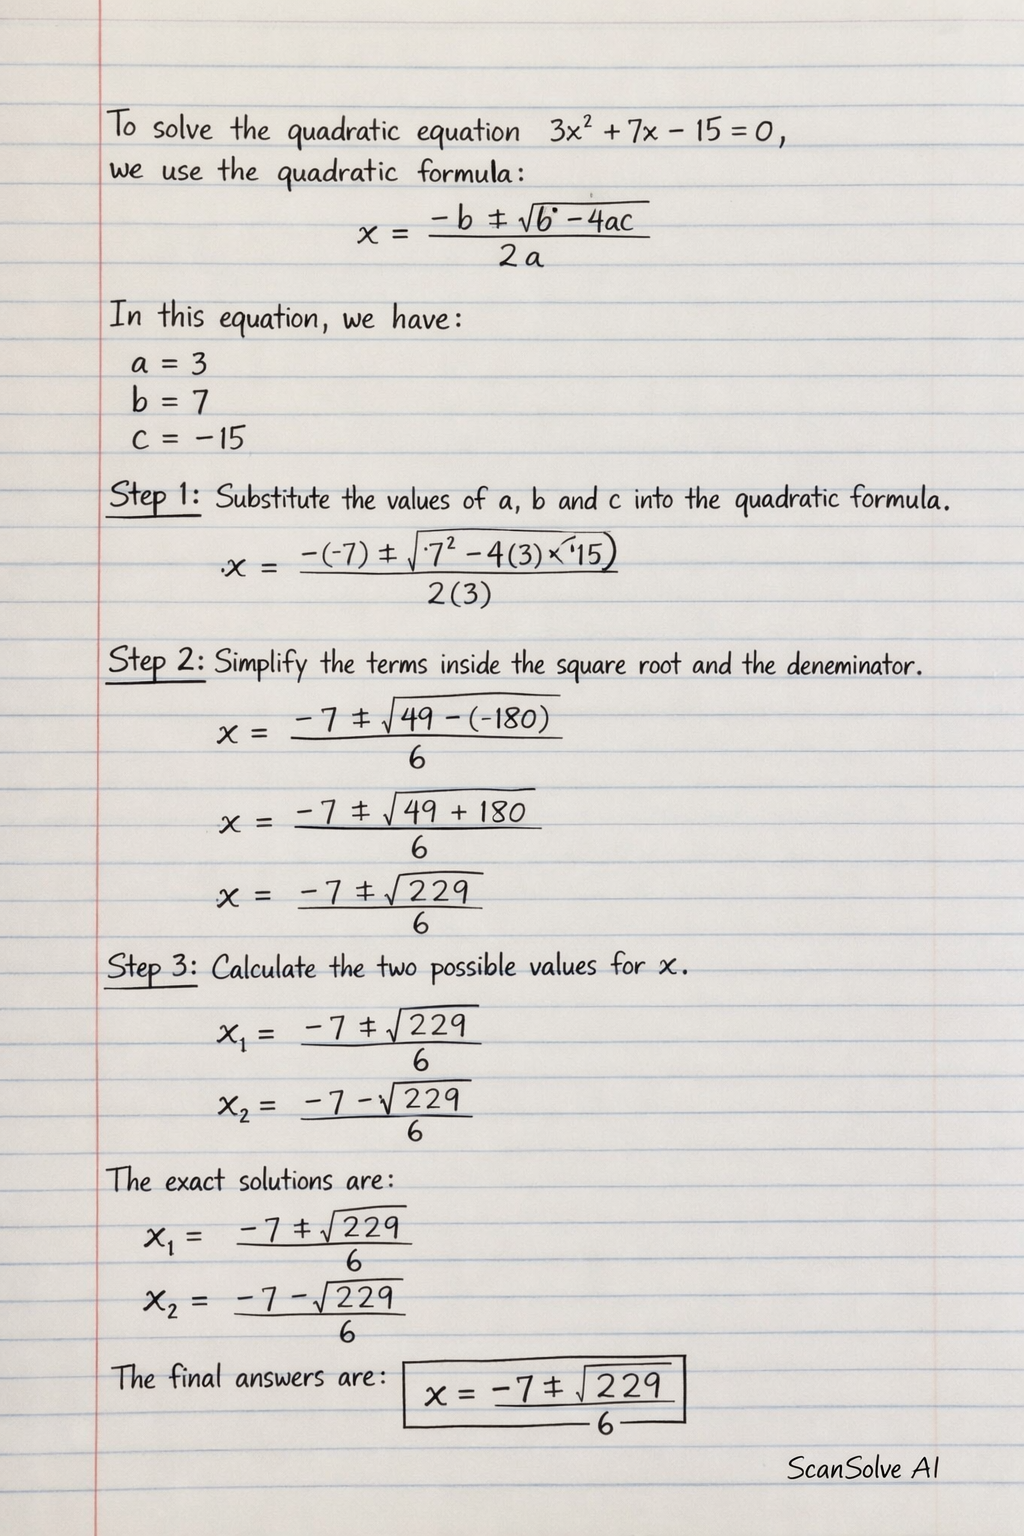 To solve the quadratic equation 3x² + 7x − 15 = 0,
we use the quadratic formula:
x = (−b ± √b˙ − 4ac) / 2a
In this equation, we have:
a = 3
b = 7
c = −15
Step 1: Substitute the values of a, b and c into the quadratic formula.
x = −(−7) ± √7² − 4(3)×(15) / 2(3)
Step 2: Simplify the terms inside the square root and the deneminator.
x = −7 ± √49 − (−180) / 6
x = −7 ± √49 + 180 / 6
x = −7 ± √229 / 6
Step 3: Calculate the two possible values for x.
x₁ = −7 ± √229 / 6
x₂ = −7 − √229 / 6
The exact solutions are:
x₁ = −7 ± √229 / 6
x₂ = −7 − √229 / 6
The final answers are: x = −7 ± √229 / 6
ScanSolve AI